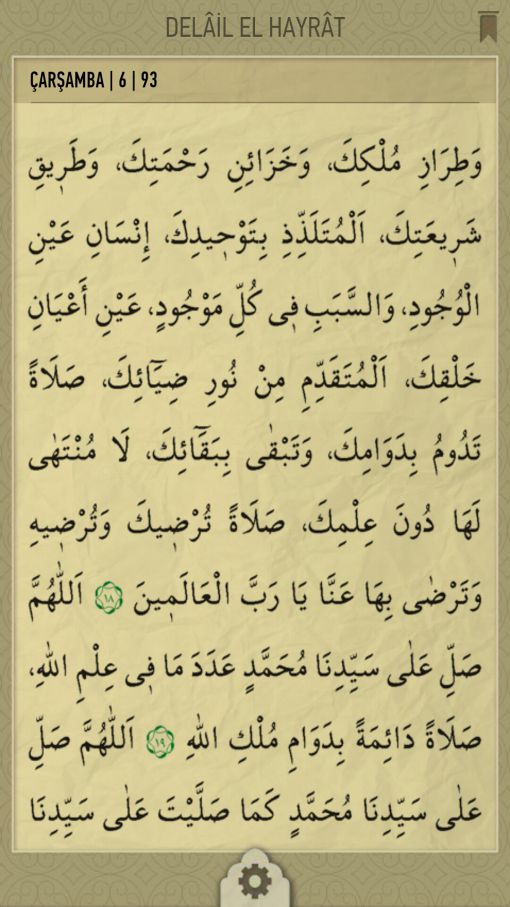 DELÂİL EL HAYRÂT
ÇARŞAMBA | 6 | 93
وَطِرَازِ مُلْكِكَ، وَخَزَائِنِ رَحْمَتِكَ، وَطَرِيقِ
شَرِيعَتِكَ، اَلْمُتَلَذِّذِ بِتَوْحِيدِكَ، إِنْسَانِ عَيْنِ
الْوُجُودِ، وَالسَّبَبِ فِى كُلِّ مَوْجُودٍ، عَيْنِ أَعْيَانِ
خَلْقِكَ، اَلْمُتَقَدِّمِ مِنْ نُورِ ضِيَٓائِكَ، صَلَاةً
تَدُومُ بِدَوَامِكَ، وَتَبْقٰى بِبَقَٓائِكَ، لَا مُنْتَهٰى
لَهَا دُونَ عِلْمِكَ، صَلَاةً تُرْضِيكَ وَتُرْضِيهِ
وَتَرْضٰى بِهَا عَنَّا يَا رَبَّ الْعَالَمِينَ ١٨ اَللّٰهُمَّ
صَلِّ عَلٰى سَيِّدِنَا مُحَمَّدٍ عَدَدَ مَا فِى عِلْمِ اللّٰهِ،
صَلَاةً دَائِمَةً بِدَوَامِ مُلْكِ اللّٰهِ ١٩ اَللّٰهُمَّ صَلِّ
عَلٰى سَيِّدِنَا مُحَمَّدٍ كَمَا صَلَّيْتَ عَلٰى سَيِّدِنَا